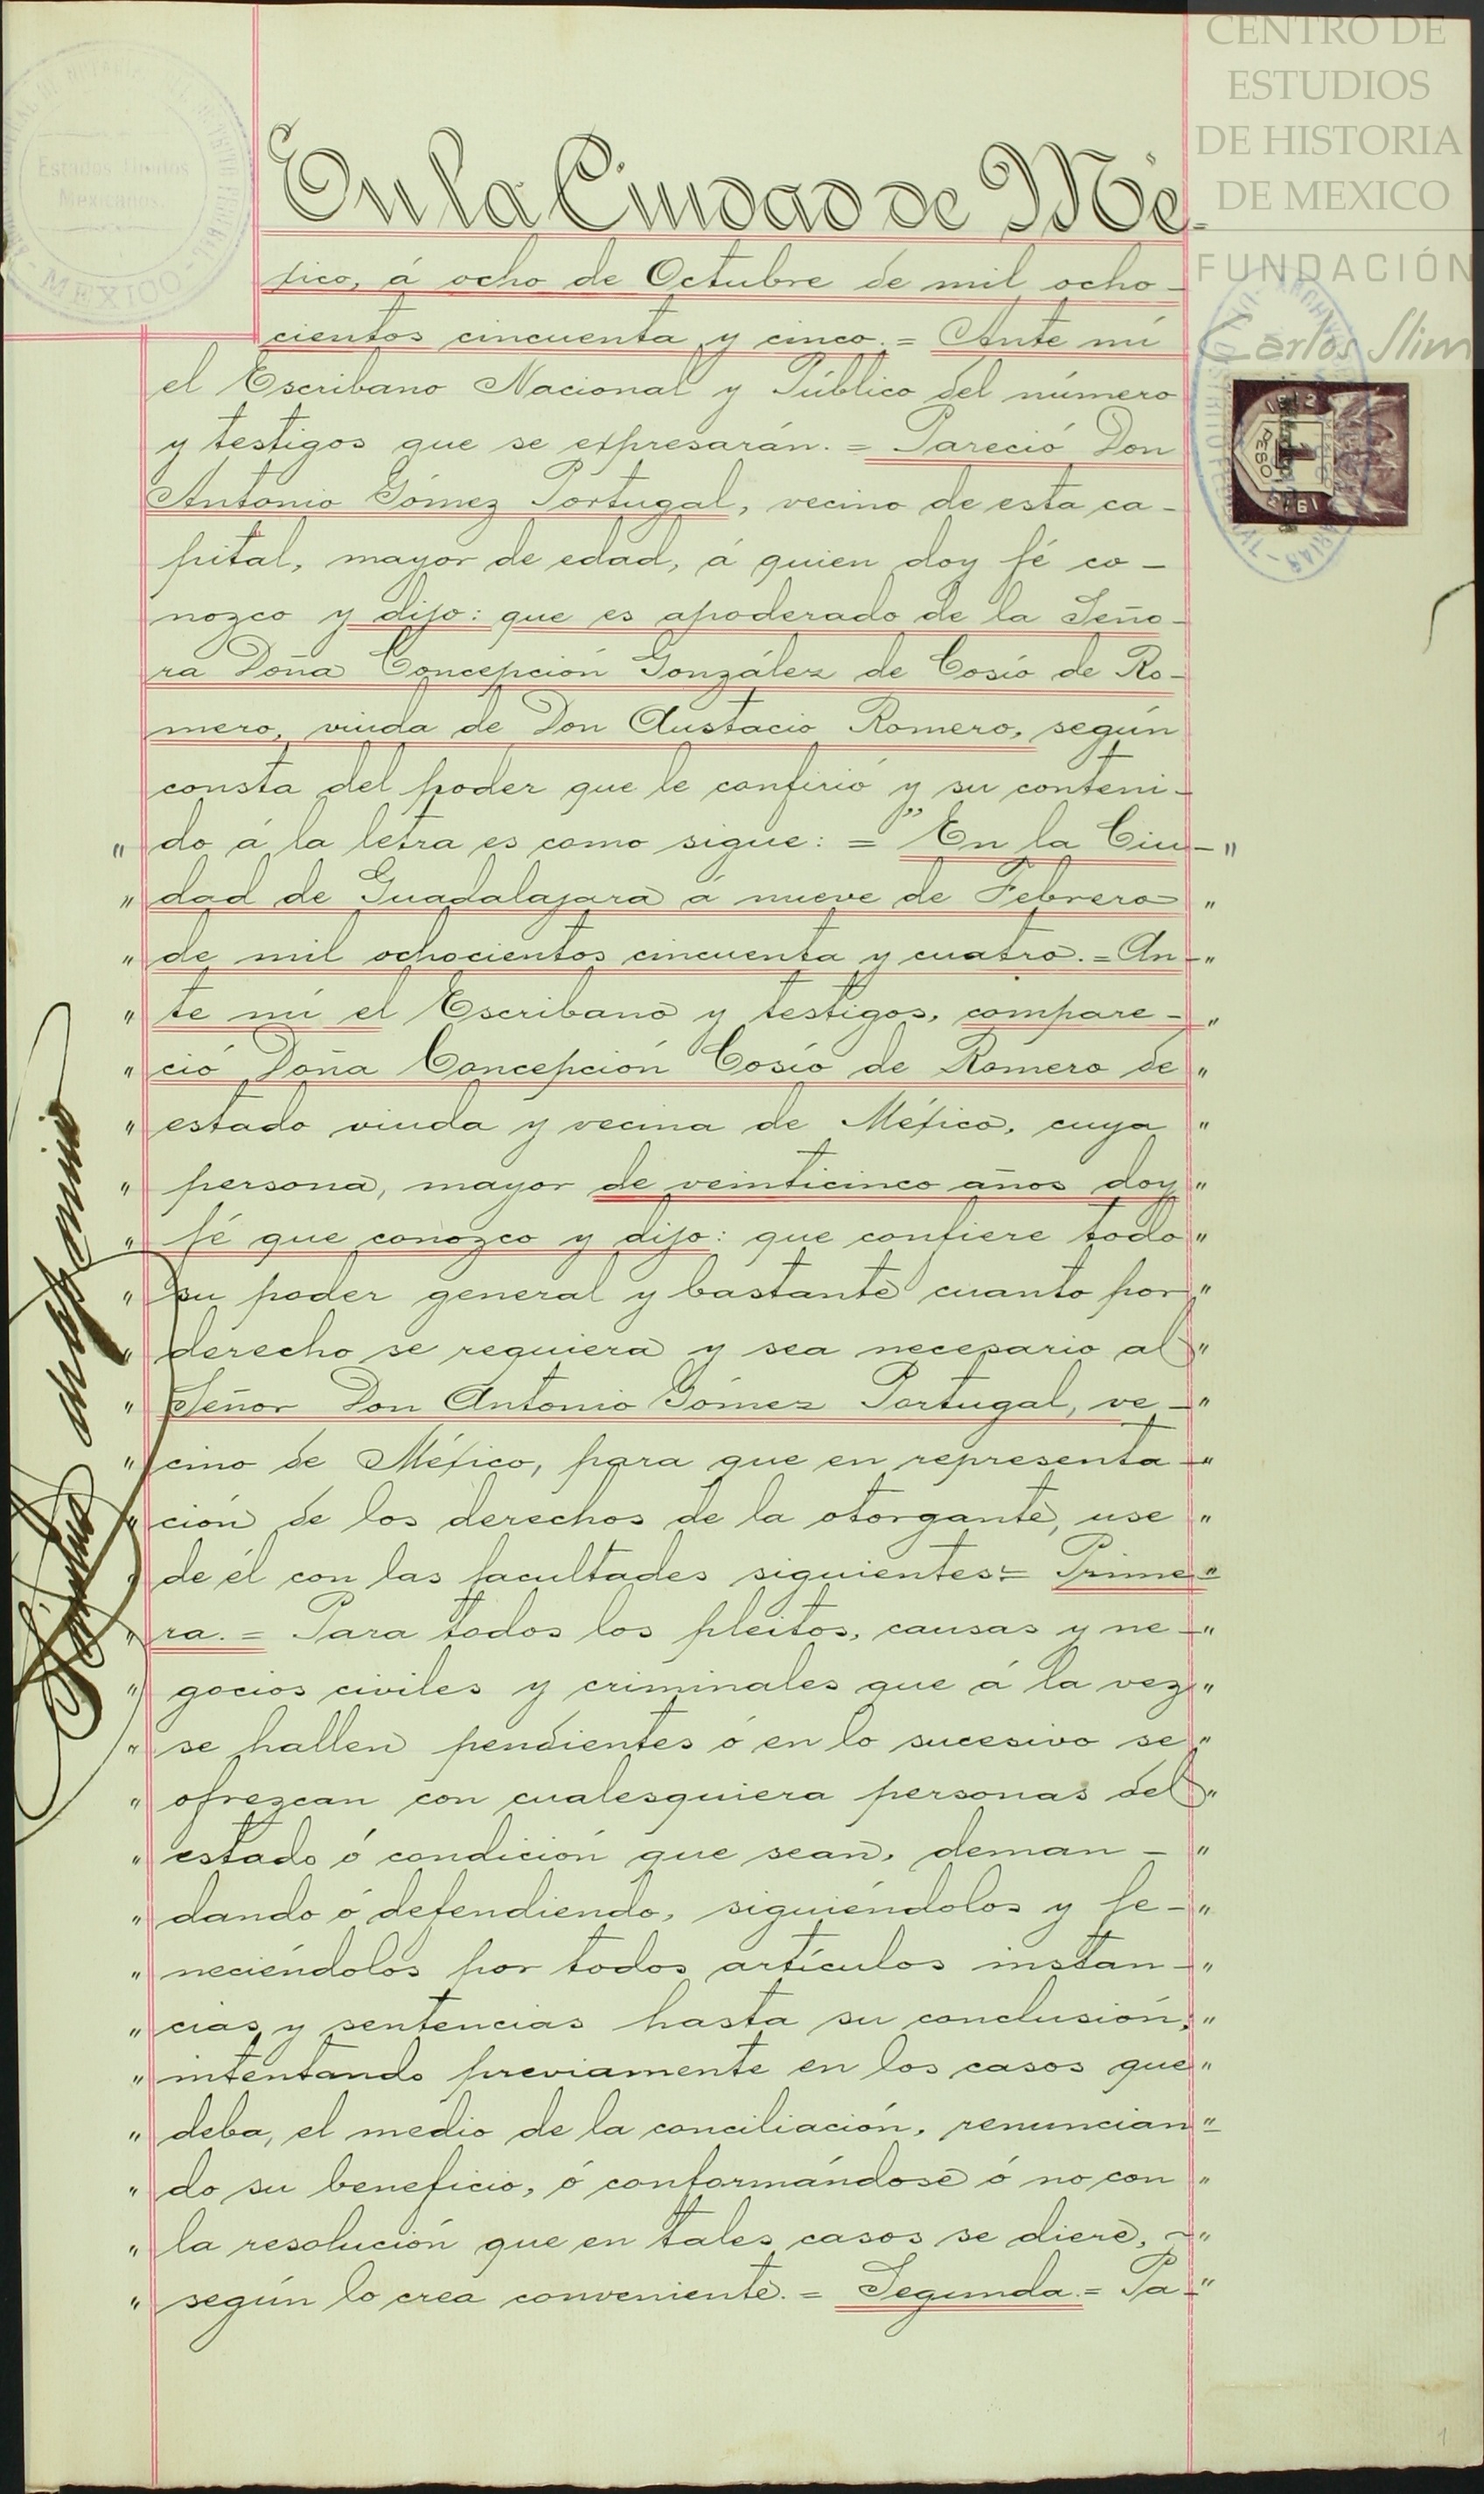 CENTRO DE
ESTUDIOS
DE HISTORIA
DE MEXICO
FUNDACIÓN
Carlos Slim
Estados Unidos
Mexicanos.
MEXICO
1912
PESO
1
1913
En la Ciudad de Mé-
xico, á ocho de Octubre de mil ocho-
cientos cincuenta y cinco. = Ante mí
el Escribano Nacional y Público del número
y testigos que se expresarán. = Pareció Don
Antonio Gómez Portugal, vecino de esta ca-
pital, mayor de edad, á quien doy fé co-
nozco y dijo: que es apoderado de la Seño-
ra Doña Concepción González de Cosío de Ro-
mero, viuda de Don Austacio Romero, según
consta del poder que le confirió y su conteni-
" do á la letra es como sigue: = "En la Ciu-"
" dad de Guadalajara á nueve de Febrero "
" de mil ochocientos cincuenta y cuatro. = An-"
" te mí el Escribano y testigos, compare-"
" ció Doña Concepción Cosío de Romero de "
" estado viuda y vecina de México, cuya "
" persona, mayor de veinticinco años doy "
" fé que conozco y dijo: que confiere todo "
" su poder general y bastante cuanto por "
" derecho se requiera y sea necesario al "
" Señor Don Antonio Gómez Portugal, ve-"
" cino de México, para que en representa-"
" ción de los derechos de la otorgante, use "
" de él con las facultades siguientes: = Prime-"
" ra. = Para todos los pleitos, causas y ne-"
" gocios civiles y criminales que á la vez "
" se hallen pendientes ó en lo sucesivo se "
" ofrezcan con cualesquiera personas del "
" estado ó condición que sean, deman-"
" dando ó defendiendo, siguiéndolos y fe-"
" neciéndolos por todos artículos instan-"
" cias y sentencias hasta su conclusión, "
" intentando previamente en los casos que "
" deba, el medio de la conciliación, renuncian-"
" do su beneficio, ó conformándose ó no con "
" la resolución que en tales casos se diere, "
" según lo crea conveniente. = Segunda. = Pa-"
1